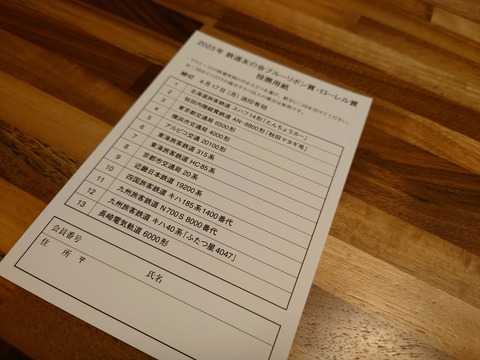 2023年 鉄道友の会ブルーリボン賞・ローレル賞
投票用紙
締切 4月17日(月)消印有効
1 北海道旅客鉄道 スハフ14形「たんちょうカー」
2 秋田内陸縦貫鉄道 AN-8800形「秋田マタギ号」
3 東京都交通局 6500形
4 横浜市交通局 4000形
5 アルピコ交通 20100形
6 東海旅客鉄道 315系
7 東海旅客鉄道 HC85系
8 京都市交通局 20系
9 近畿日本鉄道 19200系
10 四国旅客鉄道 キハ185系1400番代
11 九州旅客鉄道 N700S 8000番代
12 九州旅客鉄道 キハ40系「ふたつ星4047」
13 長崎電気軌道 6000形
会員番号
住所 〒
氏名